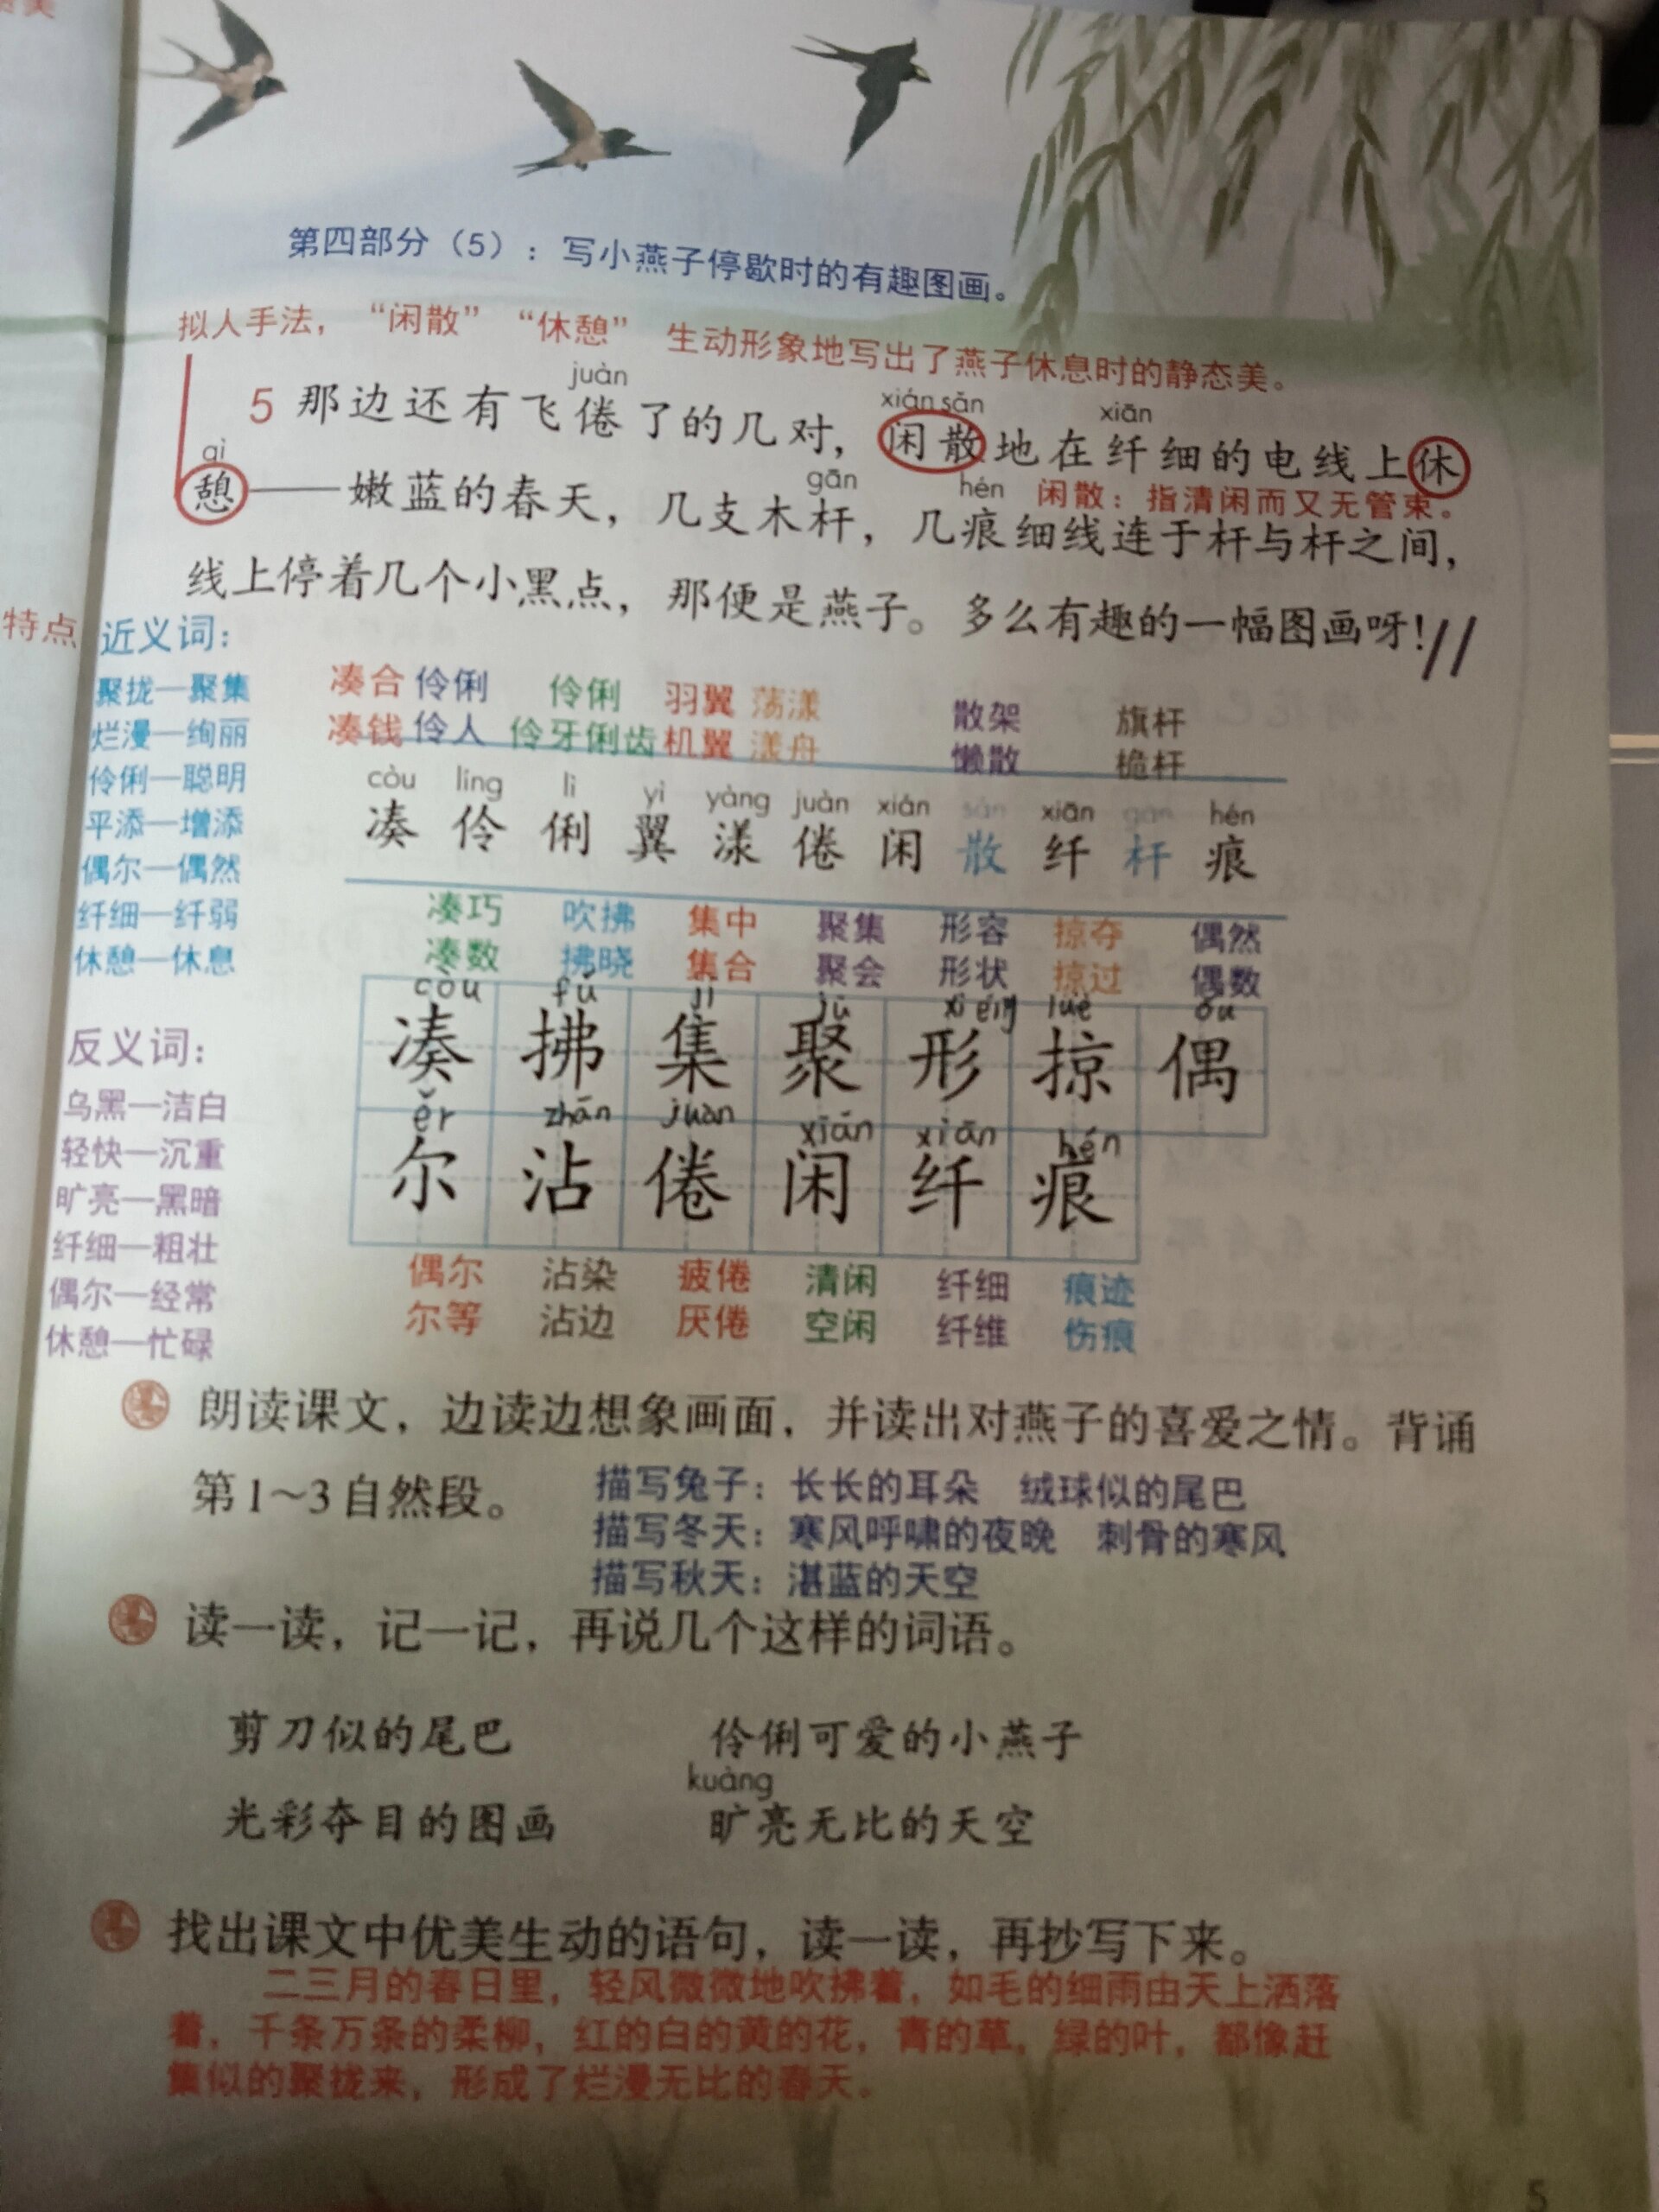 第四部分（5）：写小燕子停歇时的有趣图画。
拟人手法，“闲散”“休憩”生动形象地写出了燕子休息时的静态美。
juàn xián sǎn xiān
5 那边还有飞倦了的几对，闲散地在纤细的电线上休
qì gān hén 闲散：指清闲而又无管束。
憩——嫩蓝的春天，几支木杆，几痕细线连于杆与杆之间，
线上停着几个小黑点，那便是燕子。多么有趣的一幅图画呀！//
特点
近义词：
聚拢—聚集
烂漫—绚丽
伶俐—聪明
平添—增添
偶尔—偶然
纤细—纤弱
休憩—休息
反义词：
乌黑—洁白
轻快—沉重
旷亮—黑暗
纤细—粗壮
偶尔—经常
休憩—忙碌
凑合 伶俐 伶俐 羽翼 荡漾 散架 旗杆
凑钱 伶人 伶牙俐齿 机翼 漾舟 懒散 桅杆
còu líng lì yì yàng juàn xián sǎn xiān gān hén
凑 伶 俐 翼 漾 倦 闲 散 纤 杆 痕
凑巧 吹拂 集中 聚集 形容 掠夺 偶然
凑数 拂晓 集合 聚会 形状 掠过 偶数
còu fú jí jù xíng lüè ǒu
凑 拂 集 聚 形 掠 偶
ěr zhān juàn xián xiān hén
尔 沾 倦 闲 纤 痕
偶尔 沾染 疲倦 清闲 纤细 痕迹
尔等 沾边 厌倦 空闲 纤维 伤痕
朗读课文，边读边想象画面，并读出对燕子的喜爱之情。背诵
第1～3自然段。
描写兔子：长长的耳朵 绒球似的尾巴
描写冬天：寒风呼啸的夜晚 刺骨的寒风
描写秋天：湛蓝的天空
读一读，记一记，再说几个这样的词语。
剪刀似的尾巴 伶俐可爱的小燕子
kuàng
光彩夺目的图画 旷亮无比的天空
找出课文中优美生动的语句，读一读，再抄写下来。
二三月的春日里，轻风微微地吹拂着，如毛的细雨由天上洒落
着，千条万条的柔柳，红的白的黄的花，青的草，绿的叶，都像赶
集似的聚拢来，形成了烂漫无比的春天。
5